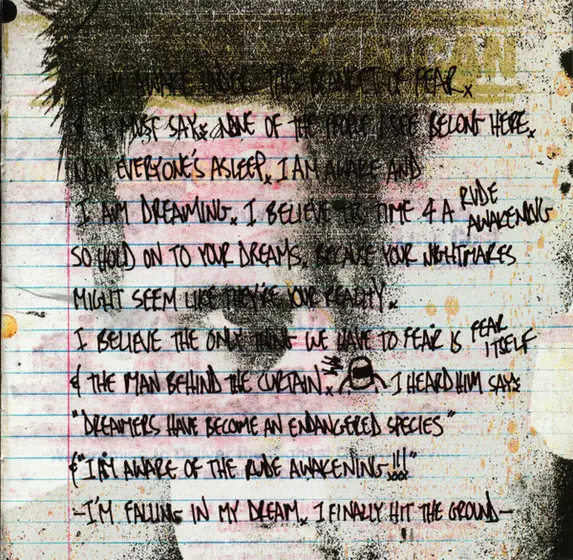 I AM AWAKE UNDER THIS BLANKET OF FEAR.
& I MUST SAY: NONE OF THE PEOPLE I SEE BELONG HERE.
NOW EVERYONE'S ASLEEP. I AM AWARE AND
I AM DREAMING. I BELIEVE IT'S TIME 4 A RUDE AWAKENING
SO HOLD ON TO YOUR DREAMS. BECAUSE YOUR NIGHTMARES
MIGHT SEEM LIKE THEY'RE YOUR REALITY.
I BELIEVE THE ONLY THING WE HAVE TO FEAR IS FEAR ITSELF
& THE MAN BEHIND THE CURTAIN. I HEARD HIM SAY:
"DREAMERS HAVE BECOME AN ENDANGERED SPECIES"
& "I AM AWARE OF THE RUDE AWAKENING!!!"
-I'M FALLING IN MY DREAM. I FINALLY HIT THE GROUND-